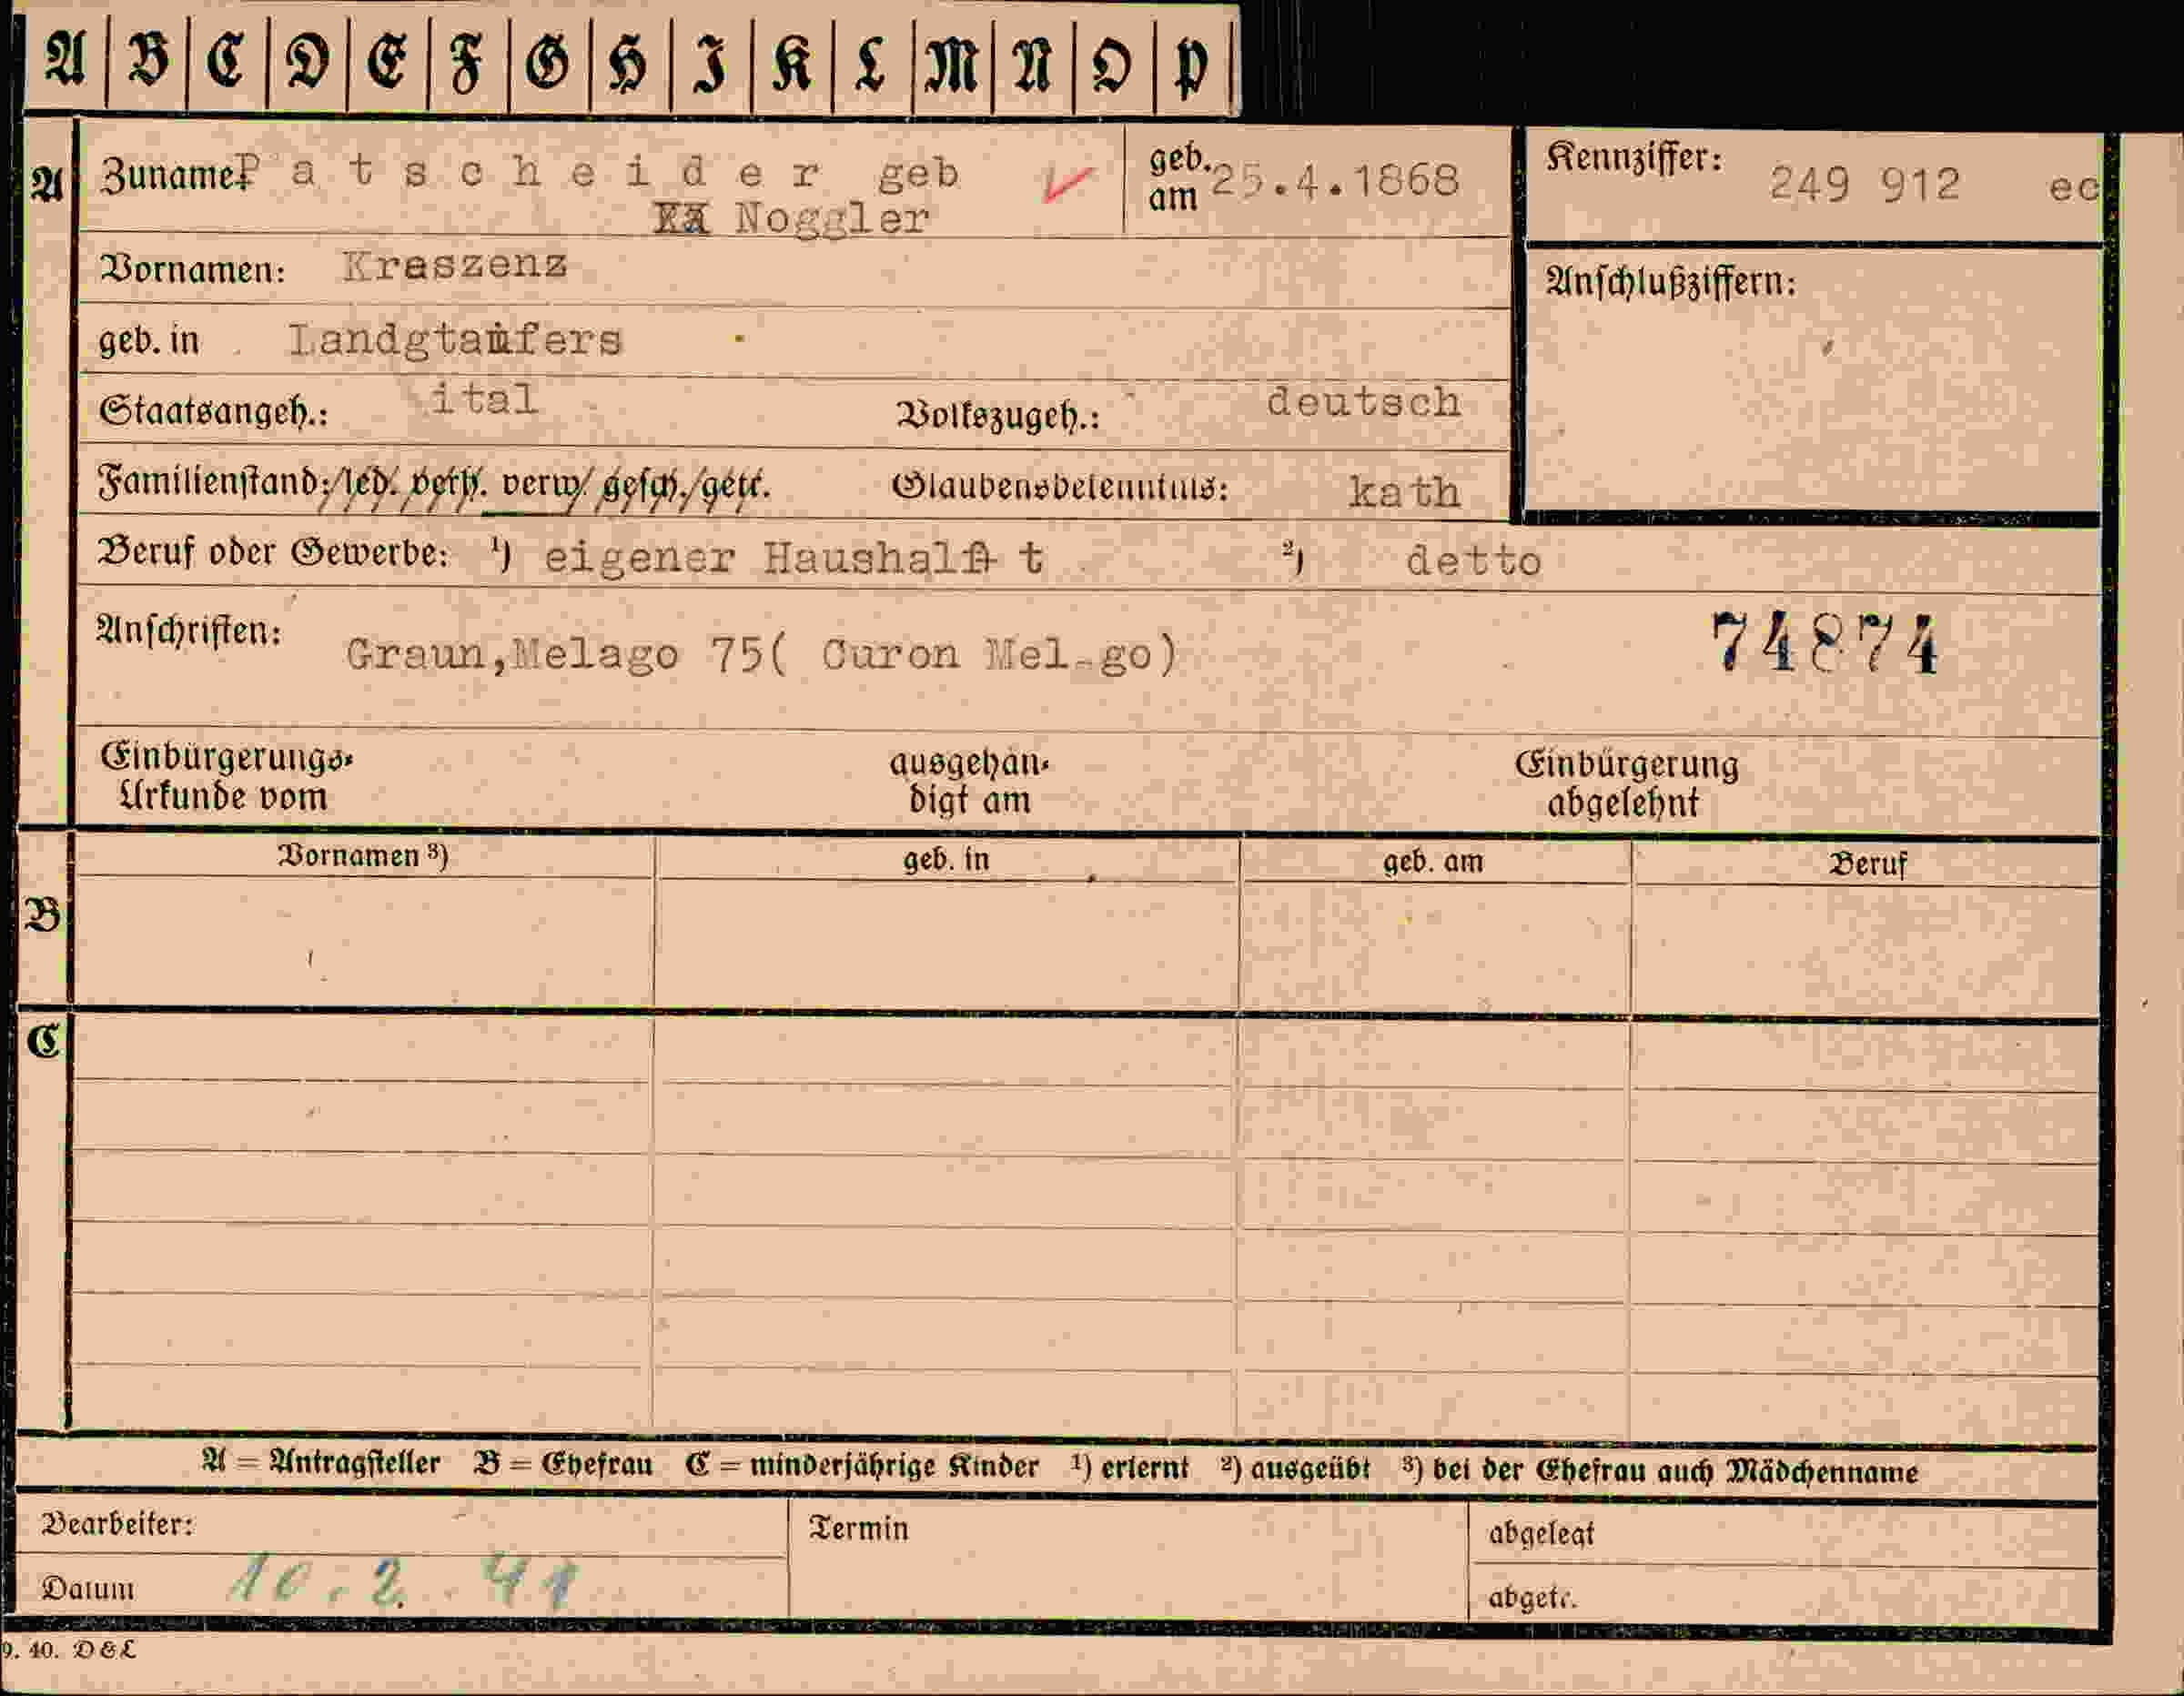 A B C D E F G H I K L M N O P
A Zuname: P a t s c h e i d e r geb
Noggler
geb. am 25.4.1868
Kennziffer: 249 912 ec
Vornamen: Kreszenz
Anschlußziffern:
geb. in Landgtaufers
Staatsangeh.: ital Volkszugeh.: deutsch
Familienstand: led. verh. verw. gesch. getr. Glaubensbekenntnis: kath
Beruf oder Gewerbe: ¹) eigener Haushalt t ²) detto
Anschriften: Graun,Melago 75( Curon Mel go)
74874
Einbürgerungs-
Urkunde vom
ausgehän-
digt am
Einbürgerung
abgelehnt
Vornamen ³) geb. in geb. am Beruf
B
C
A = Antragsteller B = Ehefrau C = minderjährige Kinder ¹) erlernt ²) ausgeübt ³) bei der Ehefrau auch Mädchenname
Bearbeiter:
Termin
abgelegt
Datum 10.2.41
abgetr.
9. 40. D & L